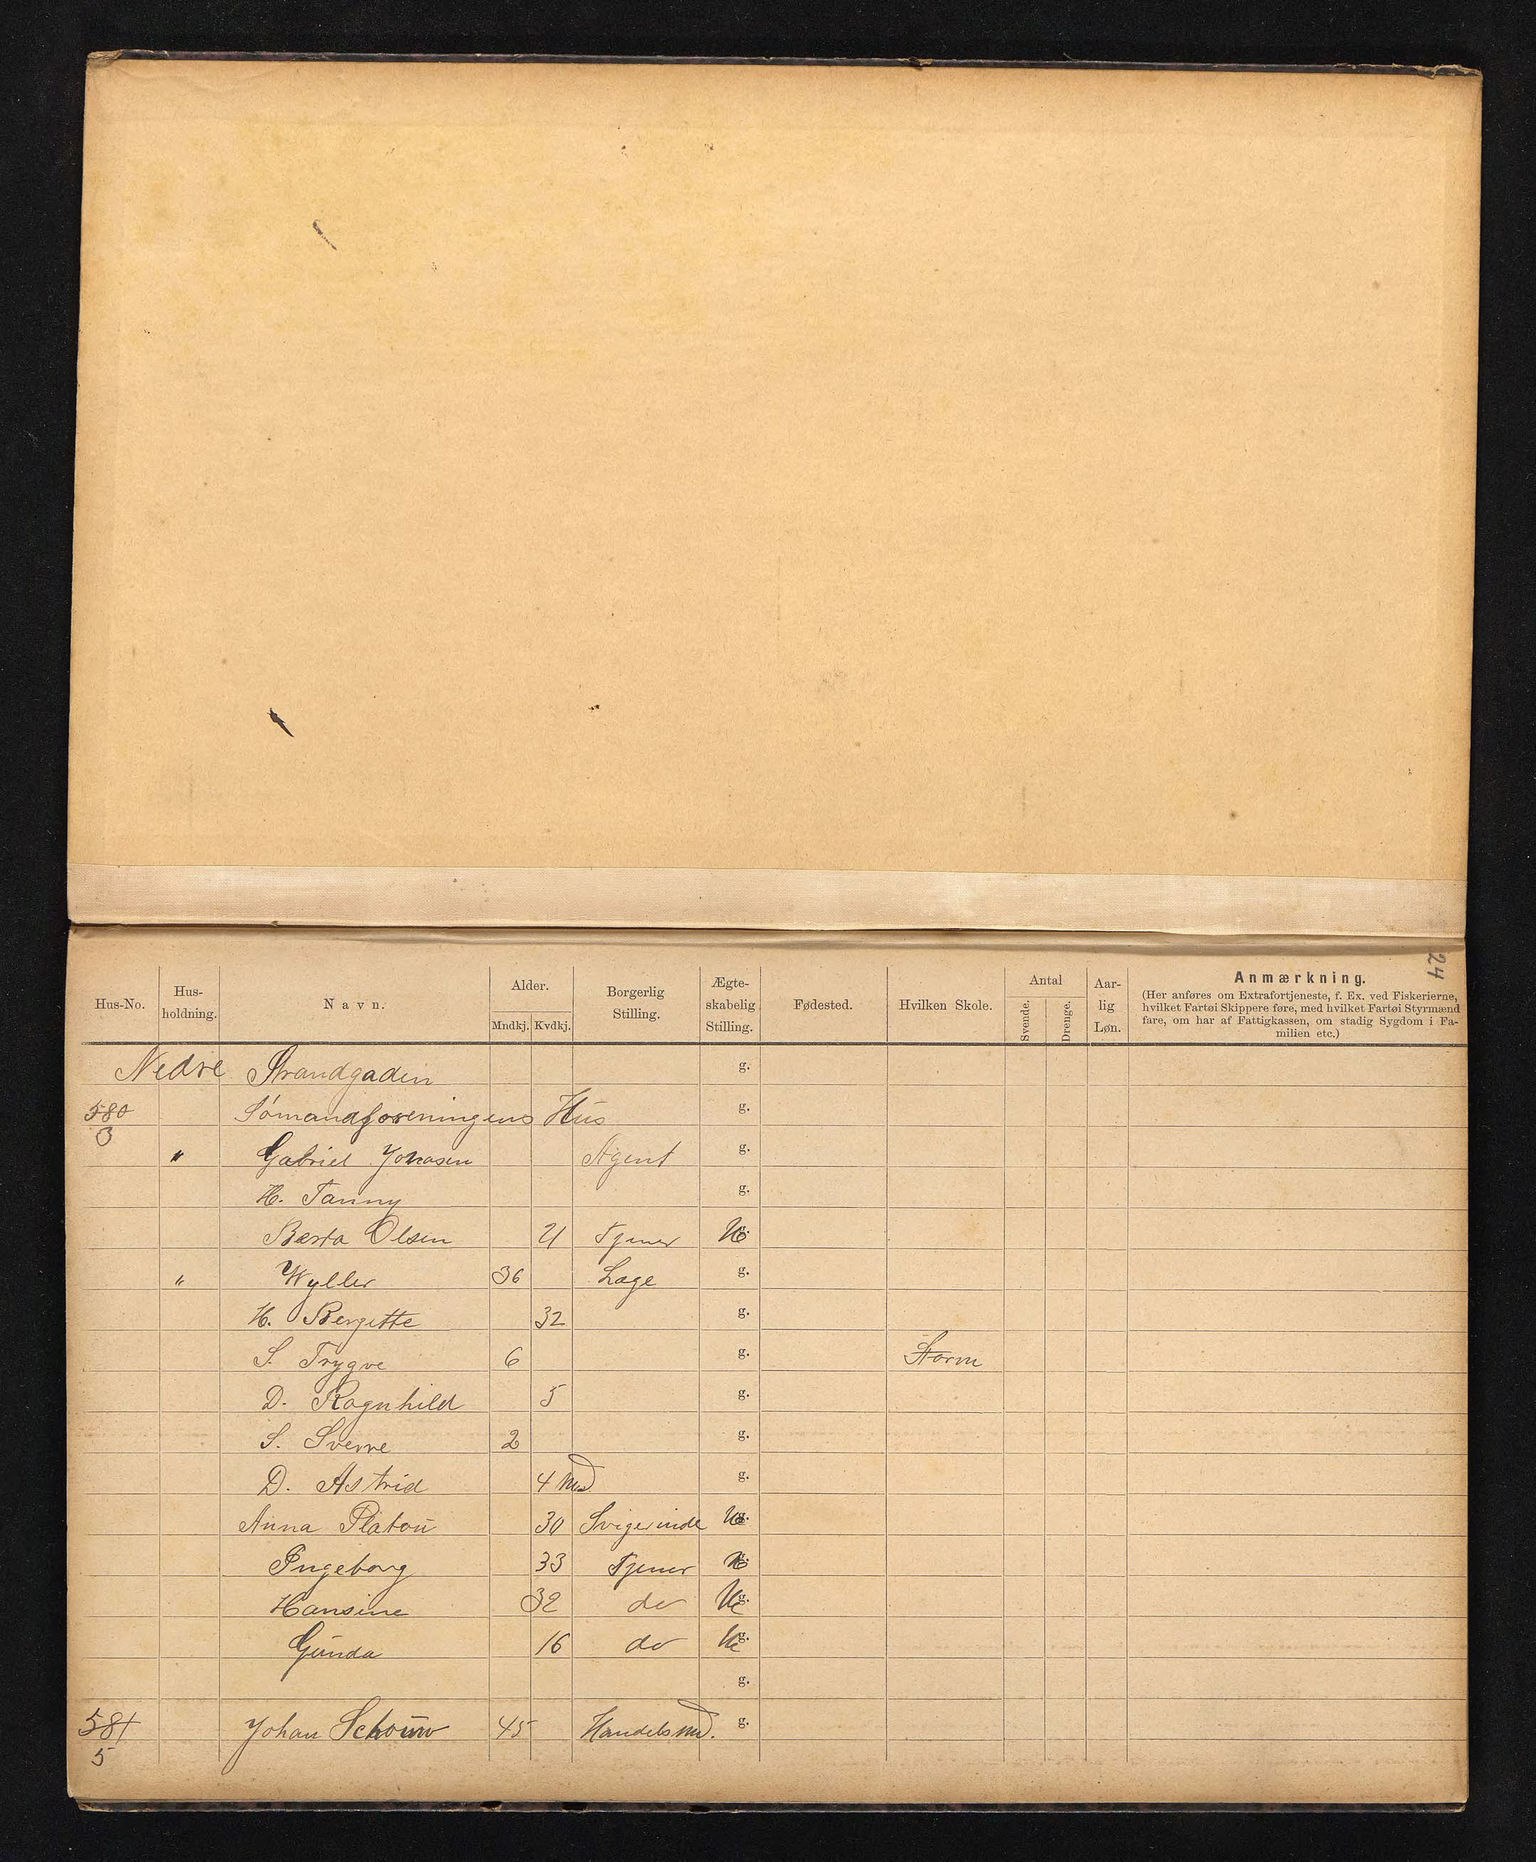 24
Hus-No. Hus-holdning. Navn. Alder. Mndkj. Kvdkj. Borgerlig Stilling. Ægte-skabelig Stilling. Fødested. Hvilken Skole. Antal Svende. Drenge. Aar-lig Løn. Anmærkning.
(Her anføres om Extrafortjeneste, f. Ex. ved Fiskerierne,
hvilket Fartøi Skippere føre, med hvilket Fartøi Styrmænd
fare, om har af Fattigkassen, om stadig Sygdom i Fa-
milien etc.)
Nedre Strandgaden g.
580 Sømandforeningens Hus g.
3
" Gabriel Jonasen Agent g.
H. Fanny g.
Berta Olsen 21 Tjener U g.
" Wyller 36 Læge g.
H. Bergitte 32 g.
S. Trygve 6 Storm g.
D. Ragnhild 5 g.
S. Sverre 2 g.
D. Astrid 4 Md g.
Anna Platou 30 Svigerinde U g.
Ingeborg 33 Tjener U g.
Hansine 32 do U g.
Gunda 16 do U g.
g.
581 Johan Schouw 45 Handelsmd. g.
5